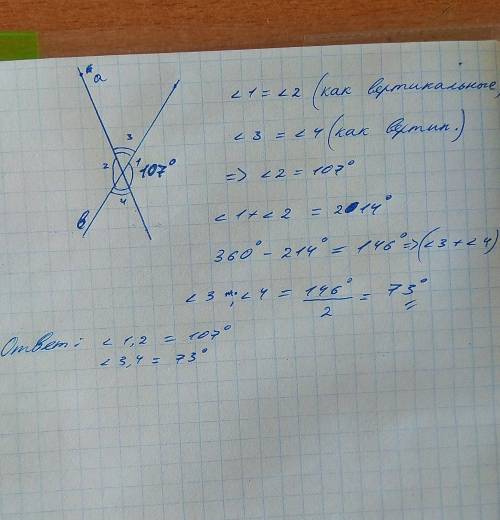 a
3
2 1 107°
4
b
∠1 = ∠2 (как вертикальные,
∠3 = ∠4 (как вертик.)
=> ∠2 = 107°
∠1 + ∠2 = 214°
360° - 214° = 146° => (∠3 + ∠4)
∠3 ; ∠4 = 146°/2 = 73°
Ответ: ∠1,2 = 107°
∠3,4 = 73°